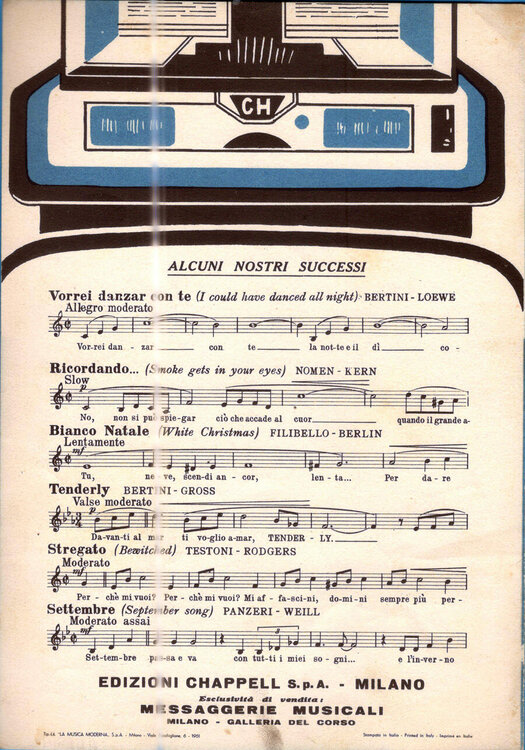 CH
ALCUNI NOSTRI SUCCESSI
Vorrei danzar con te (I could have danced all night) - BERTINI - LOEWE
Allegro moderato
Vor-rei dan - zar con te la not-te e il dì co -
Ricordando... (Smoke gets in your eyes) NOMEN - KERN
Slow
No, non si può spie-gar ciò che accade al cuor quando il grande a-
Bianco Natale (White Christmas) FILIBELLO - BERLIN
Lentamente
mf
Tu, ne - ve, scen-di an - cor, len - ta... Per da - re
Tenderly BERTINI - GROSS
Valse moderato
Da-van-ti al mar ti vo-glio a-mar, TENDER - LY.
Stregato (Bewitched) TESTONI - RODGERS
Moderato
mf
Per - chè mi vuoi? Per - chè mi vuoi? Mi af - fa-sci-ni, do-mi-ni sempre più per -
Settembre (September song) PANZERI - WEILL
Moderato assai
mf
3
Set-tem-bre pas-sa e va con tut-ti i miei so - gni... e l'in-ver-no
EDIZIONI CHAPPELL S.p.A. - MILANO
Esclusività di vendita:
MESSAGGERIE MUSICALI
MILANO - GALLERIA DEL CORSO
Tip-Lit. "LA MUSICA MODERNA, S.p.A. - Milano - Viale 6 - 1961
Stampato in Italia - Printed in Italy - Imprimé en Italie